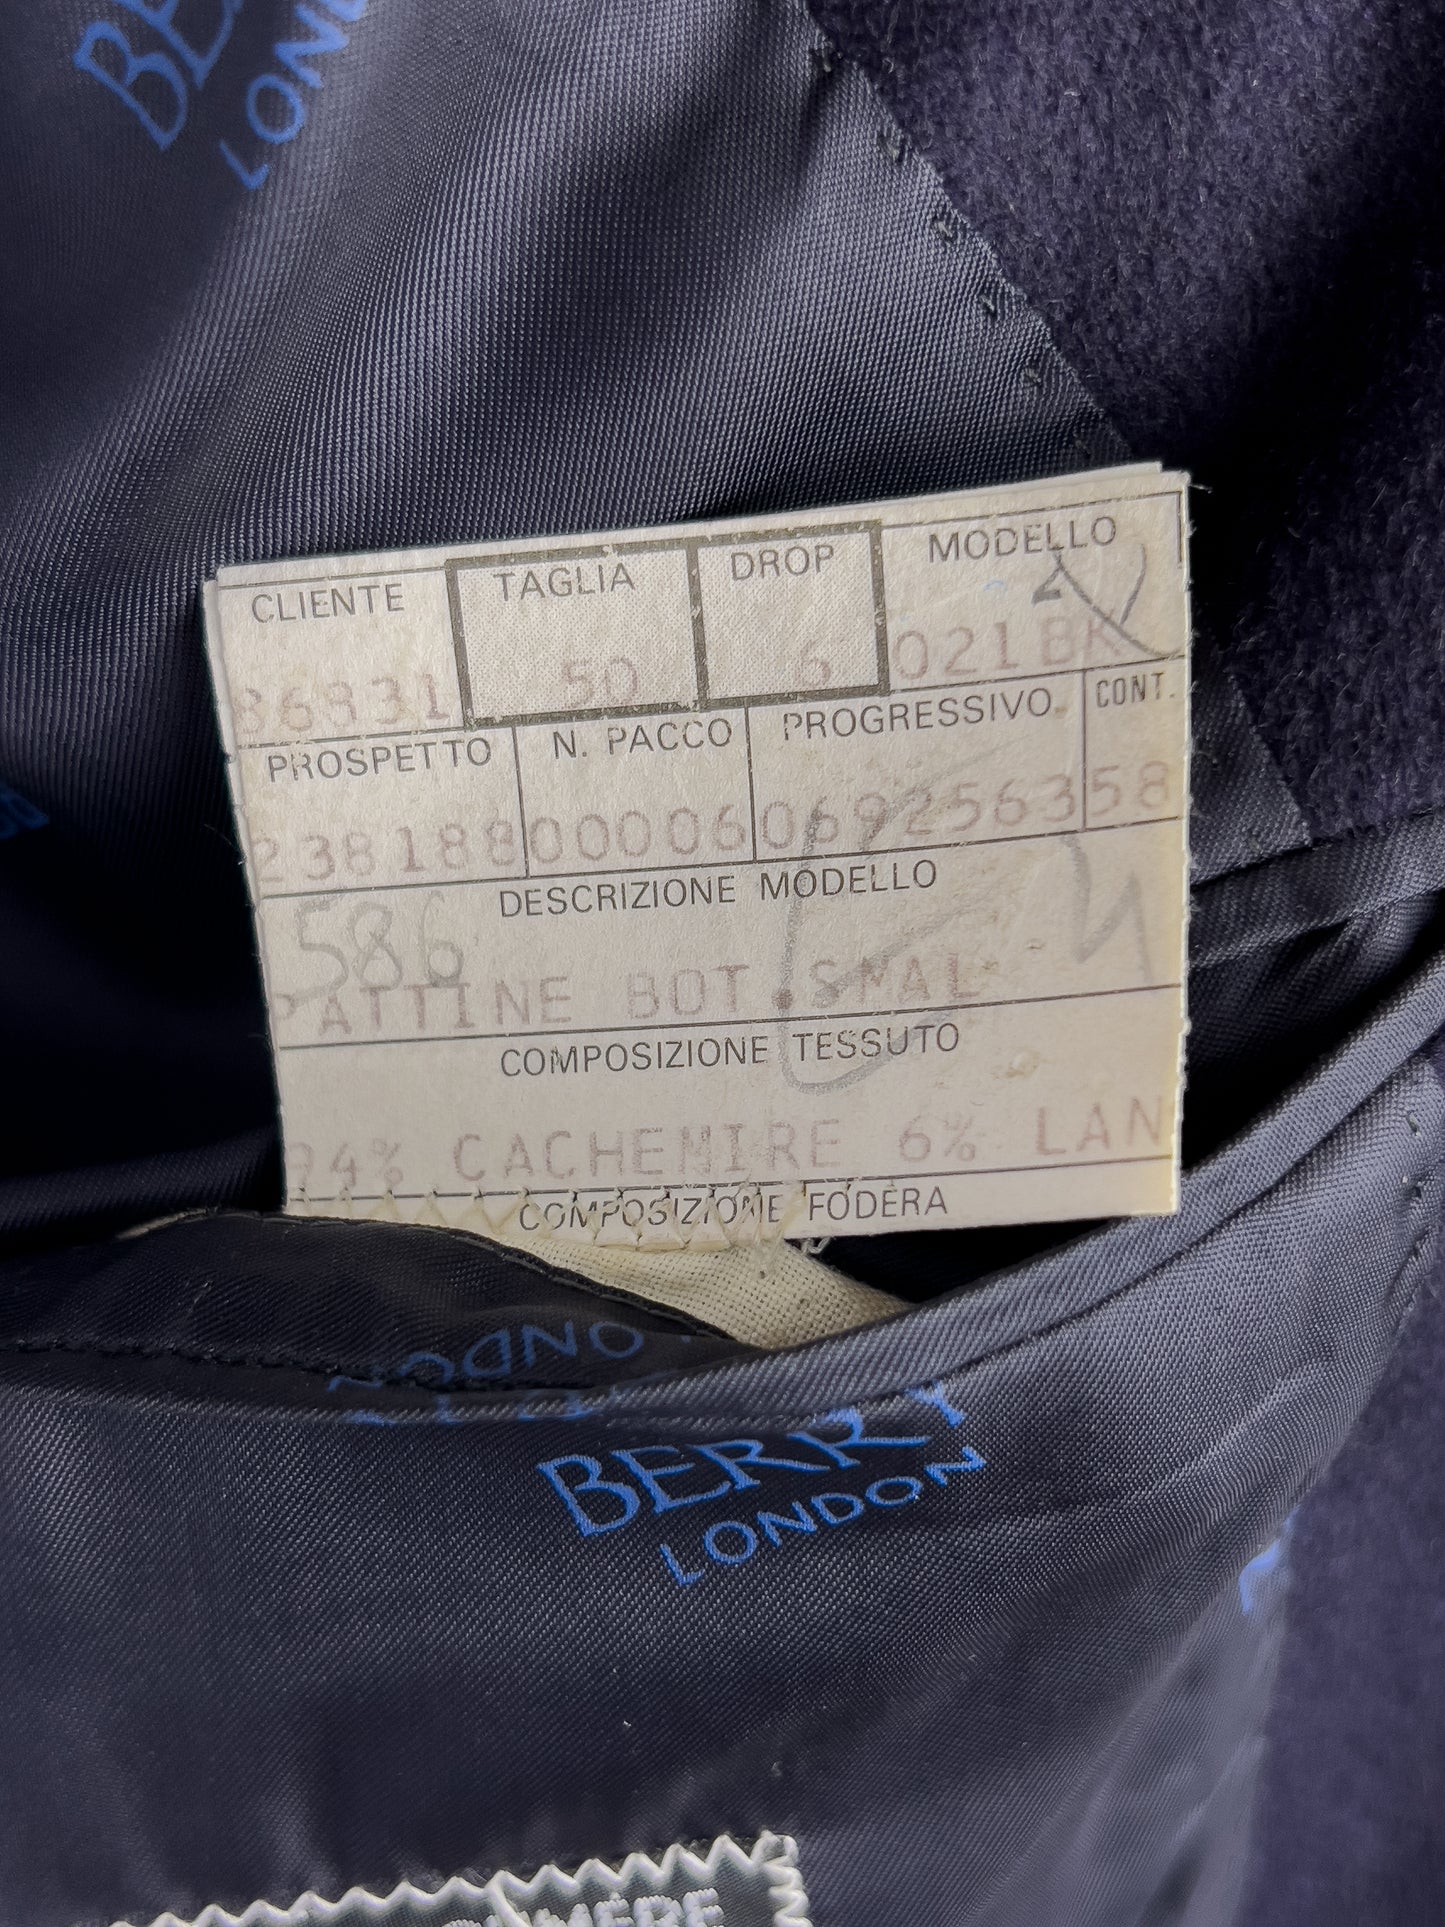 LONDON
CLIENTE TAGLIA DROP MODELLO
2
86831 50 6 021BK
PROSPETTO N. PACCO PROGRESSIVO CONT.
238188 00006 06925635 58
DESCRIZIONE MODELLO
586
PATTINE BOT.SMAL
COMPOSIZIONE TESSUTO
94% CACHEMIRE 6% LAN
COMPOSIZIONE FODERA
BERRY
LONDON